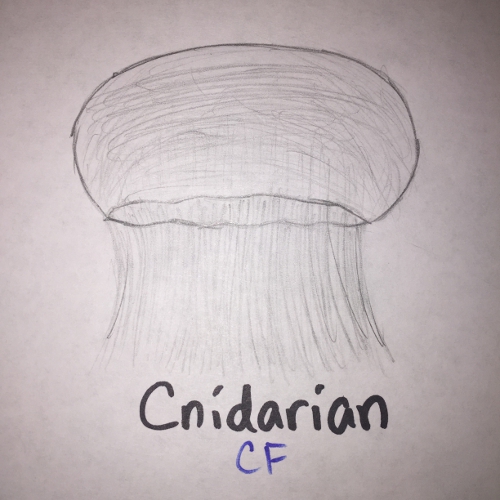 Cnidarian
CF